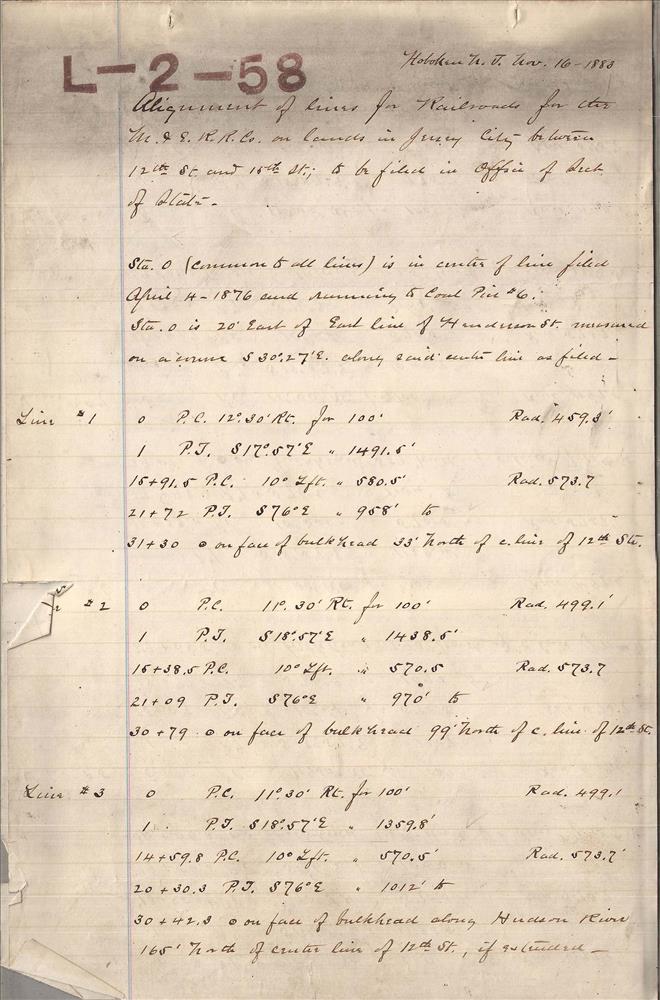 L-2-58
Hoboken N. J. Nov. 16-1883
Alignment of lines for Railroads for the
M. & E. R.R. Co. on lands in Jersey City between
12th St. and 15th St.; to be filed in Office of Sect.
of State -
Sta. 0 (common to all lines) is in center of line filed
April 4-1876 and running to Coal Pier #6.
Sta. 0 is 20' East of East line of Henderson St. measured
on a course S 30°.27'E. along said center line as filed -
Line #1 0 P.C. 12°.30' Rt. for 100' Rad. 459.3'
1 P.T. S17°.57'E " 1491.5'
15+91.5 P.C. 10° Lft. " 580.5' Rad. 573.7
21+72 P.T. S76°E " 958' to
31+30 on face of bulkhead 33' North of c. line of 12th St.
#2 0 P.C. 11°.30' Rt. for 100' Rad. 499.1'
1 P.T. S18°.57'E " 1438.5'
15+38.5 P.C. 10° Lft. " 570.5 Rad. 573.7
21+09 P.T. S76°E " 970' to
30+79 on face of bulkhead 99' North of c. line of 12th St.
Line #3 0 P.C. 11°30' Rt. for 100' Rad. 499.1
1 P.T. S18°.57'E " 1359.8'
14+59.8 P.C. 10° Lft. " 570.5' Rad. 573.7'
20+30.3 P.T. S76°E " 1012' to
30+42.3 on face of bulkhead along Hudson River
165' North of center line of 12th St., if extended -